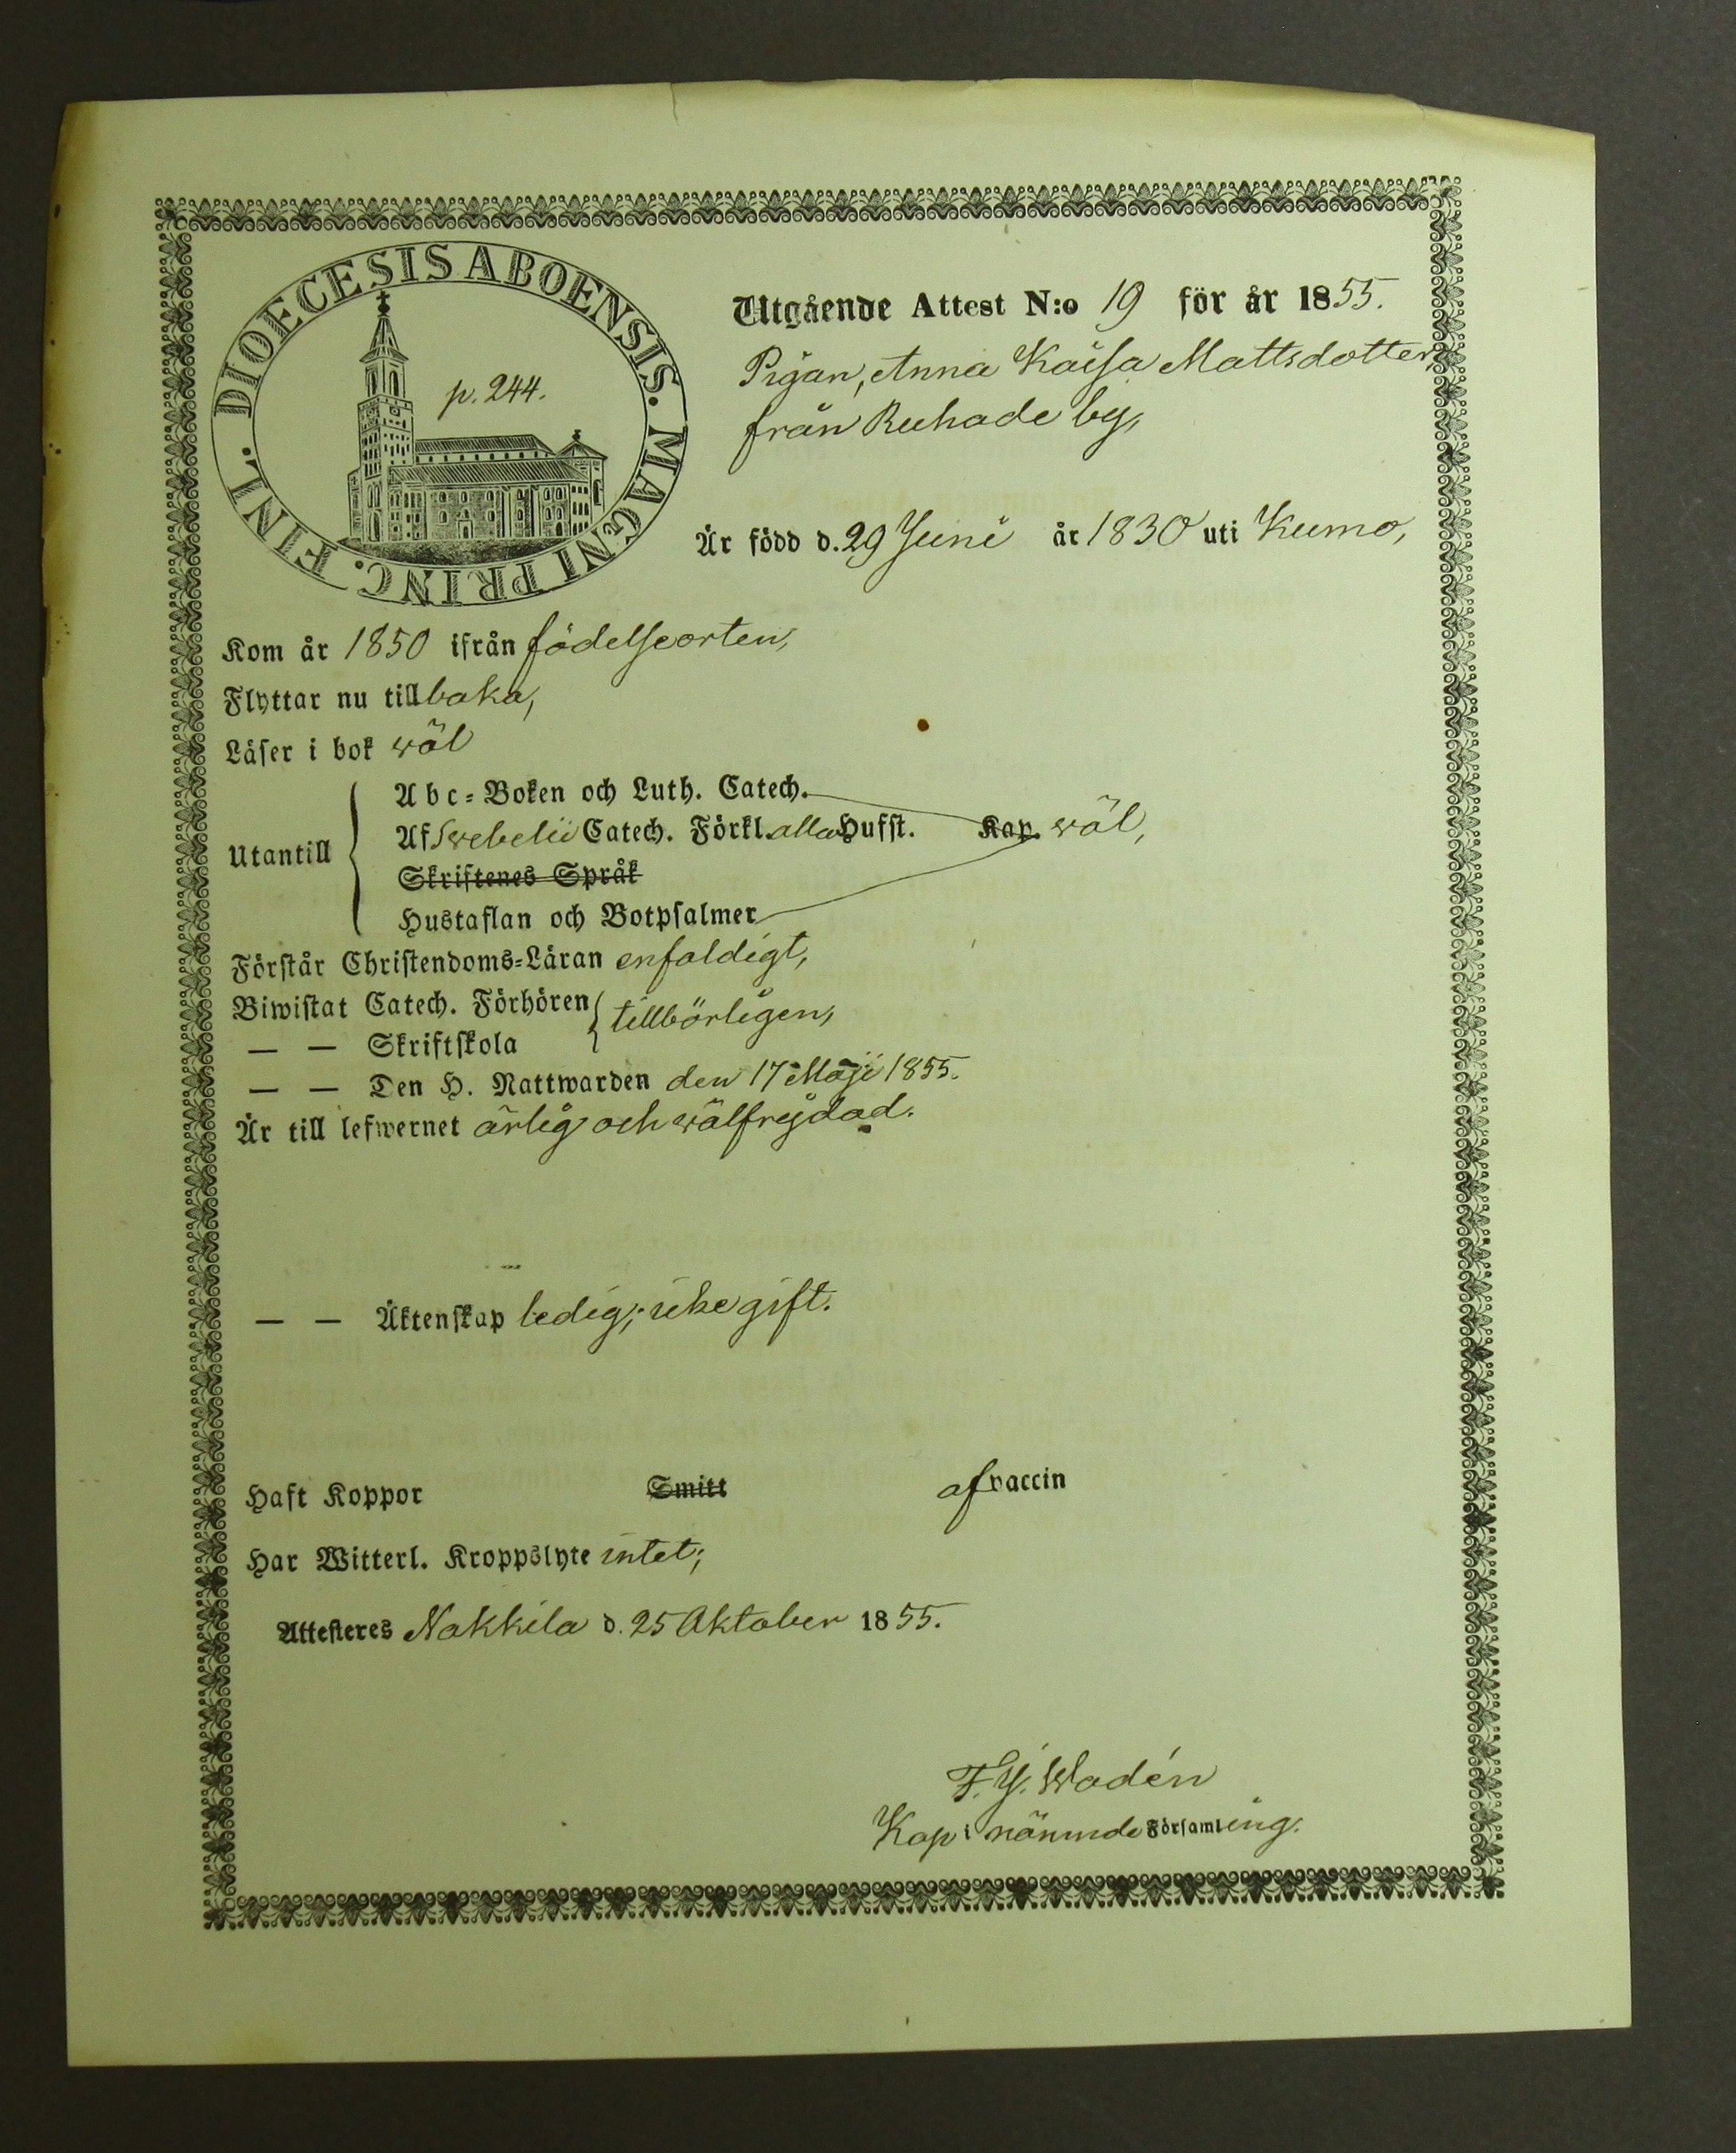 DIOECESIS ABOENSIS. MAGNI PRINC. FINL.
p. 244.
Utgående Attest N:o 19 för år 1855.
Pigan, Anna Kaisa Mattsdotter,
från Ruhade by,
Är född d. 29 Juni år 1830 uti Kumo,
Kom år 1850 ifrån födelseorten,
Flyttar nu tillbaka,
Läser i bok wäl
Utantill
Abc-Boken och Luth. Catech.
Af Swebelii Catech. Förkl. alla Hufst. Kap. wäl,
Skriftenes Språk
Hustaflan och Botpsalmer
Förstår Christendoms-Läran enfaldigt,
Biwistat Catech. Förhören
— — Skriftskola
tillbörligen,
— — Den H. Nattwarden den 17 Maji 1855.
Är till lefwernet ärlig och wälfrejdad.
— — Äktenskap ledig; icke gift.
Haft Koppor Smitt af vaccin
Har Witterl. Kroppslyte intet;
Attesteres Nakkila d. 25 Oktober 1855.
F. J. Wadén
Kap i nämnde Församling.